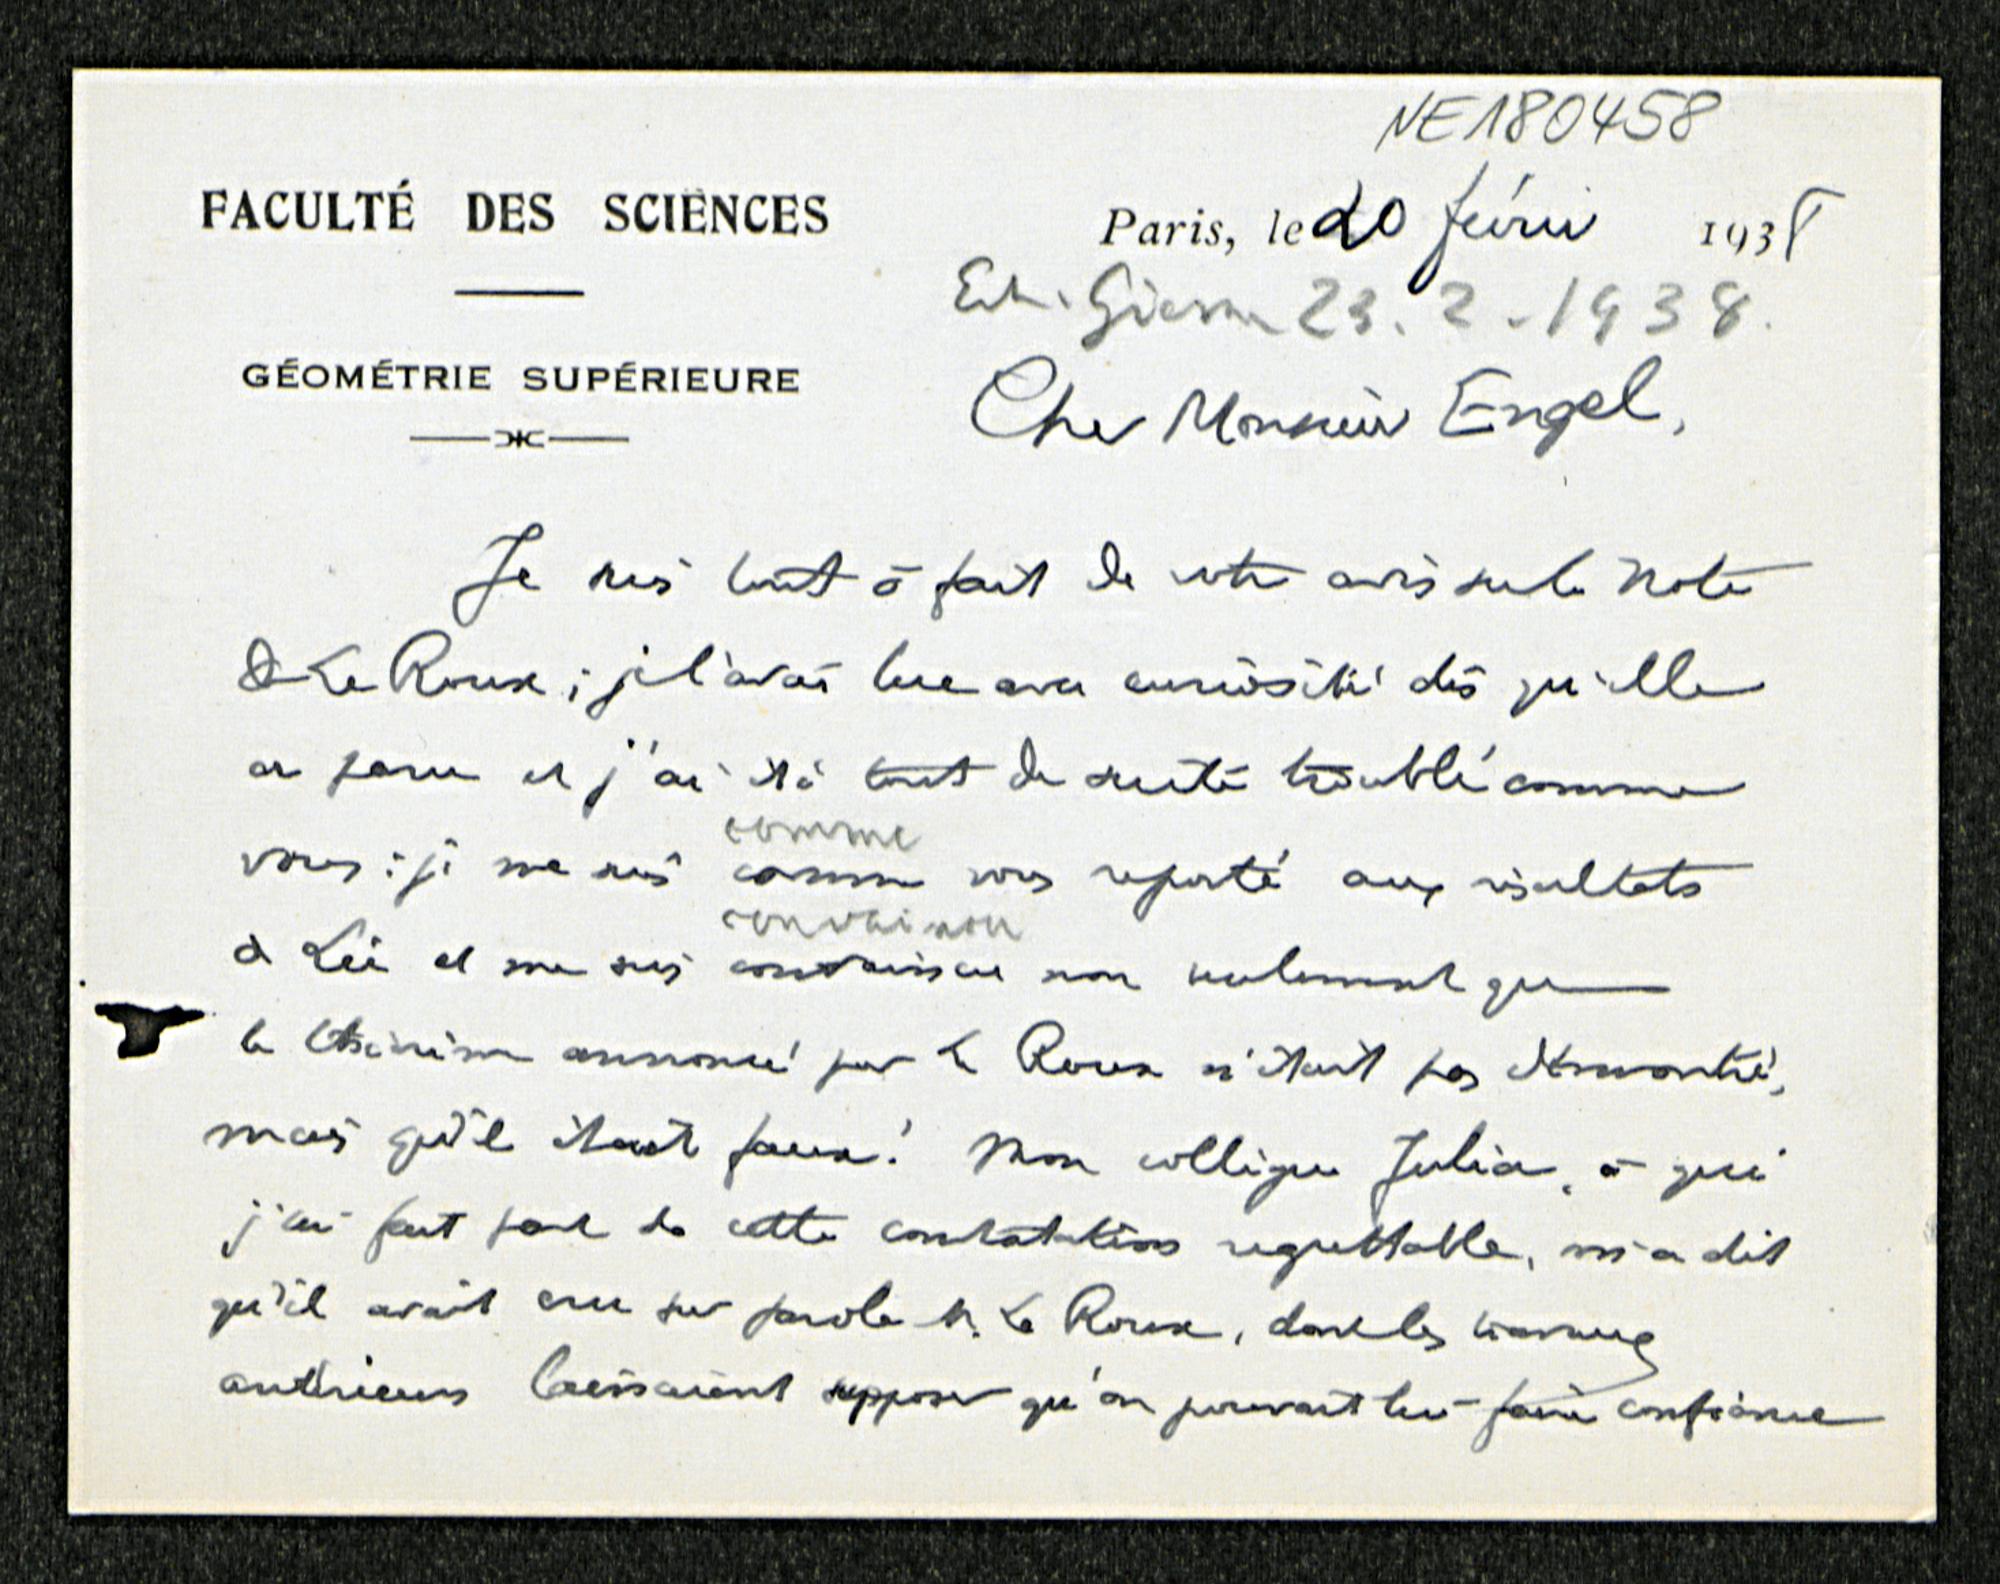 NE180458
FACULTÉ DES SCIENCES
Paris, le 20 février 1938
Erh. Giessen 23.2.1938.
GÉOMÉTRIE SUPÉRIEURE
Cher Monsieur Engel,
Je suis tout à fait de votre avis sur la Note
de Le Roux ; je l'avais lue avec curiosité dès qu'elle
a paru et j'ai été tout de suite troublé comme
comme
vous : je me suis comme vous reporté aux résultats
convaincu
de Lie et me suis convaincu non seulement que
le théorème annoncé par Le Roux n'était pas démontré,
mais qu'il était faux! Mon collègue Julia, à qui
j'ai fait part de cette constatation regrettable, m'a dit
qu'il avait cru sur parole M. Le Roux, dont les travaux
antérieurs laissaient supposer qu'on pouvait lui faire confiance